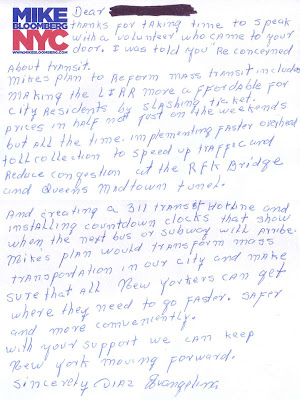 MIKE
BLOOMBERG
NYC
WWW.MIKEBLOOMBERG.COM
Dear
thanks for taking time to speak
with a volunteer who came to your
door. I was told you're concerned
About transit.
Mikes plan to Reform mass transit includes
making the LIRR more affordable for
City Residents by slashing ticket
prices in half not just on the weekends
but all the time. implementing faster overhead
toll collection to speed up traffic and
Reduce congestion at the RFK Bridge
and Queens Midtown tunnel.
And creating a 311 transit hotline and
installing countdown clocks that show
when the next bus or subway will arrive.
Mikes plan would transform mass
transportation in our city and make
sure that all New Yorkers can get
where they need to go faster. safer
and more conveniently.
with your support we can keep
New York moving forward.
Sincerely Diaz Evangelina